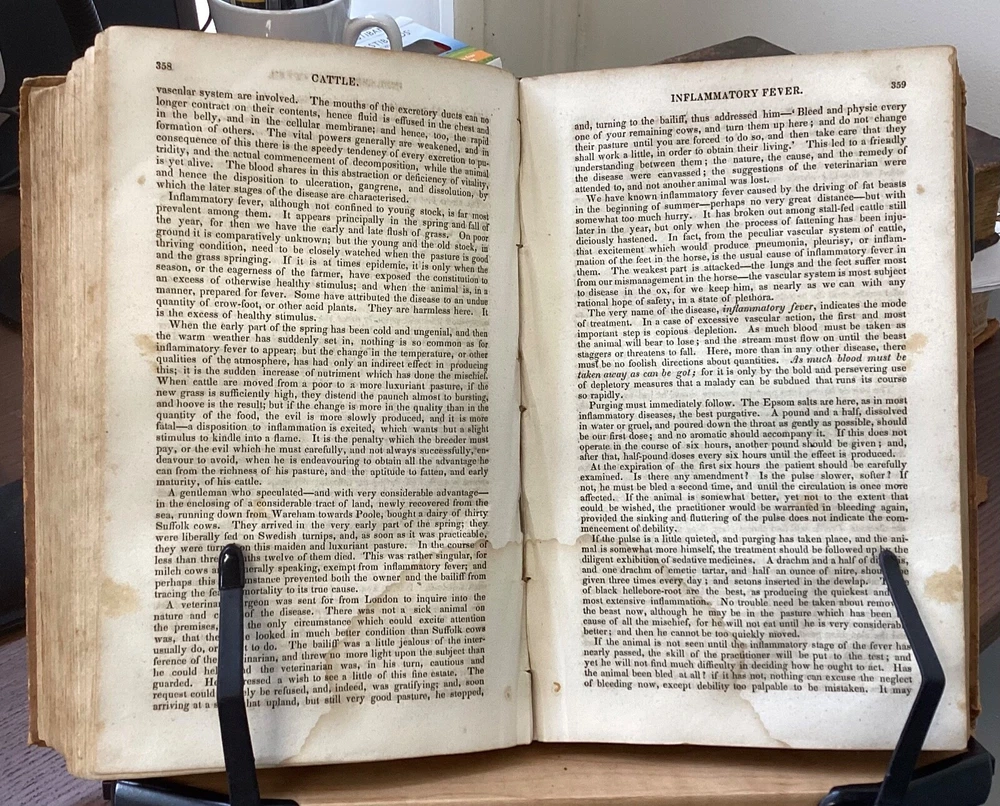 358
CATTLE.
vascular system are involved. The mouths of the excretory ducts can no
longer contract on their contents, hence fluid is effused in the chest and
in the belly, and in the cellular membrane; and hence, too, the rapid
formation of others. The vital powers generally are weakened, and in
consequence of this there is the speedy tendency of every excretion to pu-
tridity, and the actual commencement of decomposition, while the animal
is yet alive. The blood shares in this abstraction or deficiency of vitality,
and hence the disposition to ulceration, gangrene, and dissolution, by
which the later stages of the disease are characterised.
Inflammatory fever, although not confined to young stock, is far most
prevalent among them. It appears principally in the spring and fall of
the year, for then we have the early and late flush of grass. On poor
ground it is comparatively unknown; but the young and the old stock, in
thriving condition, need to be closely watched when the pasture is good
and the grass springing. If it is at times epidemic, it is only when the
season, or the eagerness of the farmer, have exposed the constitution to
an excess of otherwise healthy stimulus; and when the animal is, in a
manner, prepared for fever. Some have attributed the disease to an undue
quantity of crow-foot, or other acid plants. They are harmless here. It
is the excess of healthy stimulus.
When the early part of the spring has been cold and ungenial, and then
the warm weather has suddenly set in, nothing is so common as for
inflammatory fever to appear; but the change in the temperature, or other
qualities of the atmosphere, has had only an indirect effect in producing
this; it is the sudden increase of nutriment which has done the mischief.
When cattle are moved from a poor to a more luxuriant pasture, if the
new grass is sufficiently high, they distend the paunch almost to bursting,
and hoove is the result; but if the change is more in the quality than in the
quantity of the food, the evil is more slowly produced, and it is more
fatal—a disposition to inflammation is excited, which wants but a slight
stimulus to kindle into a flame. It is the penalty which the breeder must
pay, or the evil which he must carefully, and not always successfully, en-
deavour to avoid, when he is endeavouring to obtain all the advantage he
can from the richness of his pasture, and the aptitude to fatten, and early
maturity, of his cattle.
A gentleman who speculated—and with very considerable advantage—
in the enclosing of a considerable tract of land, newly recovered from the
sea, running down from Wareham towards Poole, bought a dairy of thirty
Suffolk cows. They arrived in the very early part of the spring; they
were liberally fed on Swedish turnips, and, as soon as it was practicable,
they were on this maiden and luxuriant pasture. In the course of
less than three ths twelve of them died. This was rather singular, for
milch cows a erally speaking, exempt from inflammatory fever; and
perhaps this mstance prevented both the owner and the bailiff from
tracing the fea ortality to its true cause.
A veterinar geon was sent for from London to inquire into the
nature and c of the disease. There was not a sick animal on
the premises, the only circumstance which could excite attention
was, that the looked in much better condition than Suffolk cows
usually do, or t to do. The bailiff was a little jealous of the inter-
ference of the inarian, and threw no more light upon the subject than
he could hel d the veterinarian was, in his turn, cautious and
guarded. He ressed a wish to see a little of this fine estate. The
request could ly be refused, and, indeed, was gratifying; and, soon
arriving at a s hat upland, but still very good pasture, he stopped,
INFLAMMATORY FEVER.
359
and, turning to the bailiff, thus addressed him—‘Bleed and physic every
one of your remaining cows, and turn them up here; and do not change
their pasture until you are forced to do so, and then take care that they
shall work a little, in order to obtain their living.’ This led to a friendly
understanding between them; the nature, the cause, and the remedy of
the disease were canvassed; the suggestions of the veterinarian were
attended to, and not another animal was lost.
We have known inflammatory fever caused by the driving of fat beasts
in the beginning of summer—perhaps no very great distance—but with
somewhat too much hurry. It has broken out among stall-fed cattle still
later in the year, but only when the process of fattening has been inju-
diciously hastened. In fact, from the peculiar vascular system of cattle,
that excitement which would produce pneumonia, pleurisy, or inflam-
mation of the feet in the horse, is the usual cause of inflammatory fever in
them. The weakest part is attacked—the lungs and the feet suffer most
from our mismanagement in the horse—the vascular system is most subject
to disease in the ox, for we keep him, as nearly as we can with any
rational hope of safety, in a state of plethora.
The very name of the disease, inflammatory fever, indicates the mode
of treatment. In a case of excessive vascular action, the first and most
important step is copious depletion. As much blood must be taken as
the animal will bear to lose; and the stream must flow on until the beast
staggers or threatens to fall. Here, more than in any other disease, there
must be no foolish directions about quantities. As much blood must be
taken away as can be got; for it is only by the bold and persevering use
of depletory measures that a malady can be subdued that runs its course
so rapidly.
Purging must immediately follow. The Epsom salts are here, as in most
inflammatory diseases, the best purgative. A pound and a half, dissolved
in water or gruel, and poured down the throat as gently as possible, should
be our first dose; and no aromatic should accompany it. If this does not
operate in the course of six hours, another pound should be given; and,
after that, half-pound doses every six hours until the effect is produced.
At the expiration of the first six hours the patient should be carefully
examined. Is there any amendment? Is the pulse slower, softer? If
not, he must be bled a second time, and until the circulation is once more
affected. If the animal is somewhat better, yet not to the extent that
could be wished, the practitioner would be warranted in bleeding again,
provided the sinking and fluttering of the pulse does not indicate the com-
mencement of debility.
If the pulse is a little quieted, and purging has taken place, and the ani-
mal is somewhat more himself, the treatment should be followed up by the
diligent exhibition of sedative medicines. A drachm and a half of di is,
and one drachm of emetic tartar, and half an ounce of nitre, should be
given three times every day; and setons inserted in the dewlap. T
of black hellebore-root are the best, as producing the quickest and
most extensive inflammation. No trouble need be taken about remov
the beast now, although he may be in the pasture which has been
cause of all the mischief, for he will not eat until he is very considerab
better; and then he cannot be too quickly moved.
If the animal is not seen until the inflammatory stage of the fever has
nearly passed, the skill of the practitioner will be put to the test; and
yet he will not find much difficulty in deciding how he ought to act. Has
the animal been bled at all? if it has not, nothing can excuse the neglect
of bleeding now, except debility too palpable to be mistaken. It may